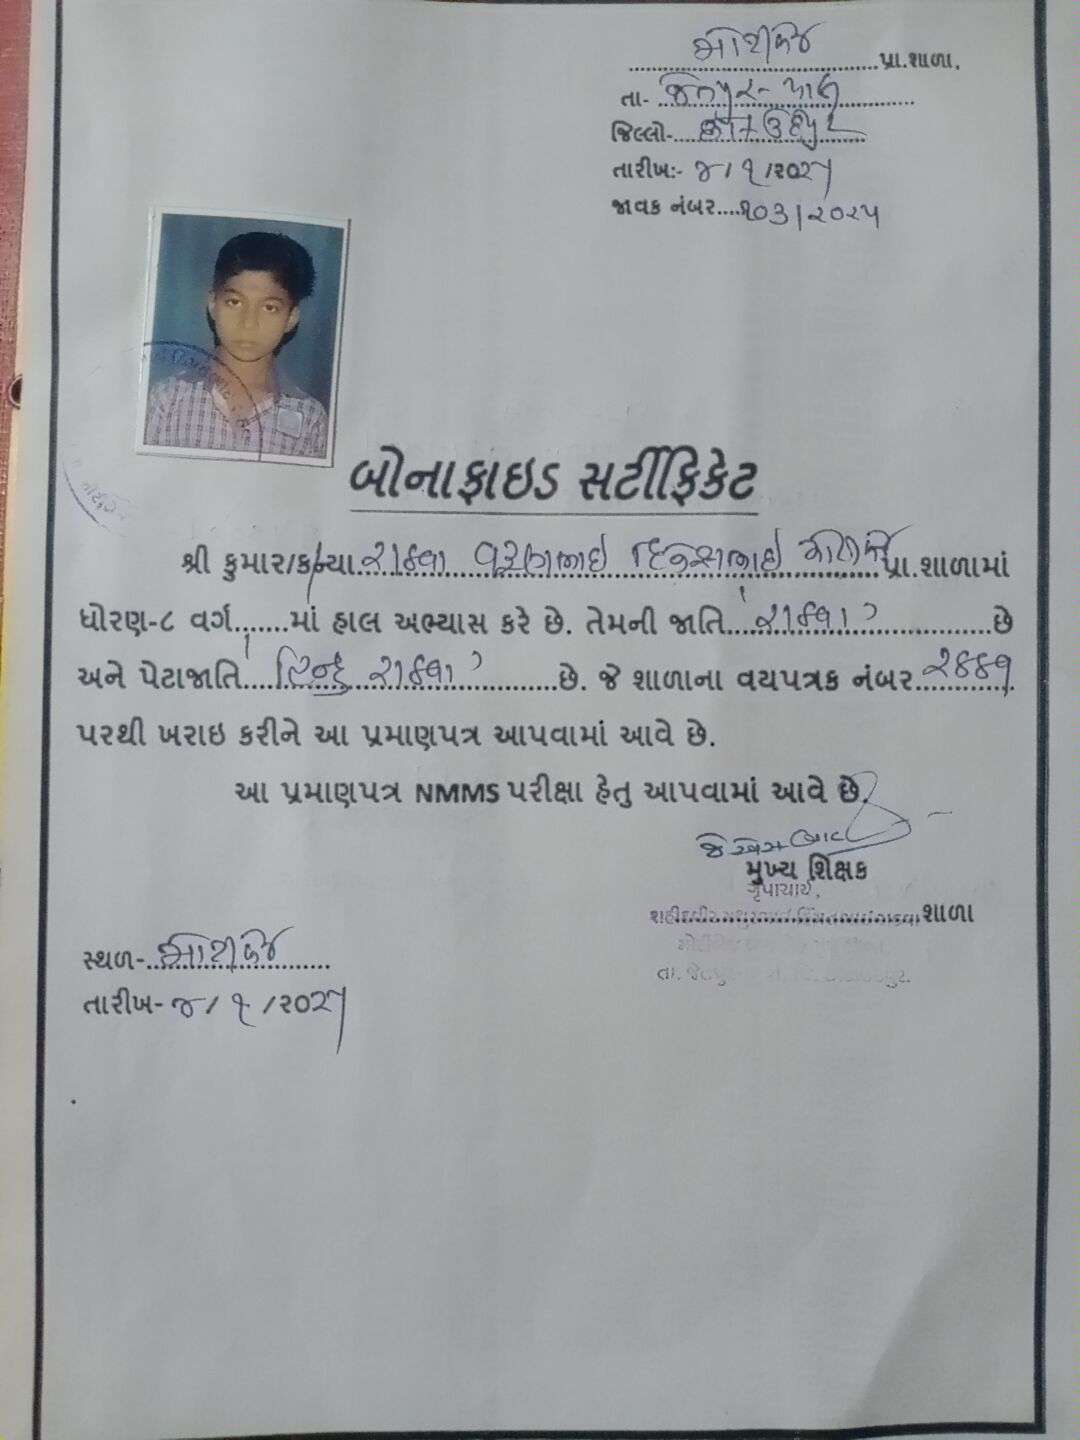 પ્રા.શાળા,
તા- જેતપુર-પાવી
જિલ્લો- છોટાઉદેપુર
તારીખ:- ૪/૧/૨૦૨૫
જાવક નંબર....૧૦૩/૨૦૨૫
બોનાફાઇડ સર્ટીફિકેટ
શ્રી કુમાર/કન્યા રાઠવા વરુણભાઇ દિનેશભાઇ પ્રા.શાળામાં
ધોરણ-૮ વર્ગ.......માં હાલ અભ્યાસ કરે છે. તેમની જાતિ રાઠવા છે
અને પેટાજાતિ હિન્દુ રાઠવા છે. જે શાળાના વયપત્રક નંબર ૨૪૪૧
પરથી ખરાઇ કરીને આ પ્રમાણપત્ર આપવામાં આવે છે.
આ પ્રમાણપત્ર NMMS પરીક્ષા હેતુ આપવામાં આવે છે.
મુખ્ય શિક્ષક
શાળા
તા. જેતપુર
સ્થળ-
તારીખ- ૪/૧/૨૦૨૫